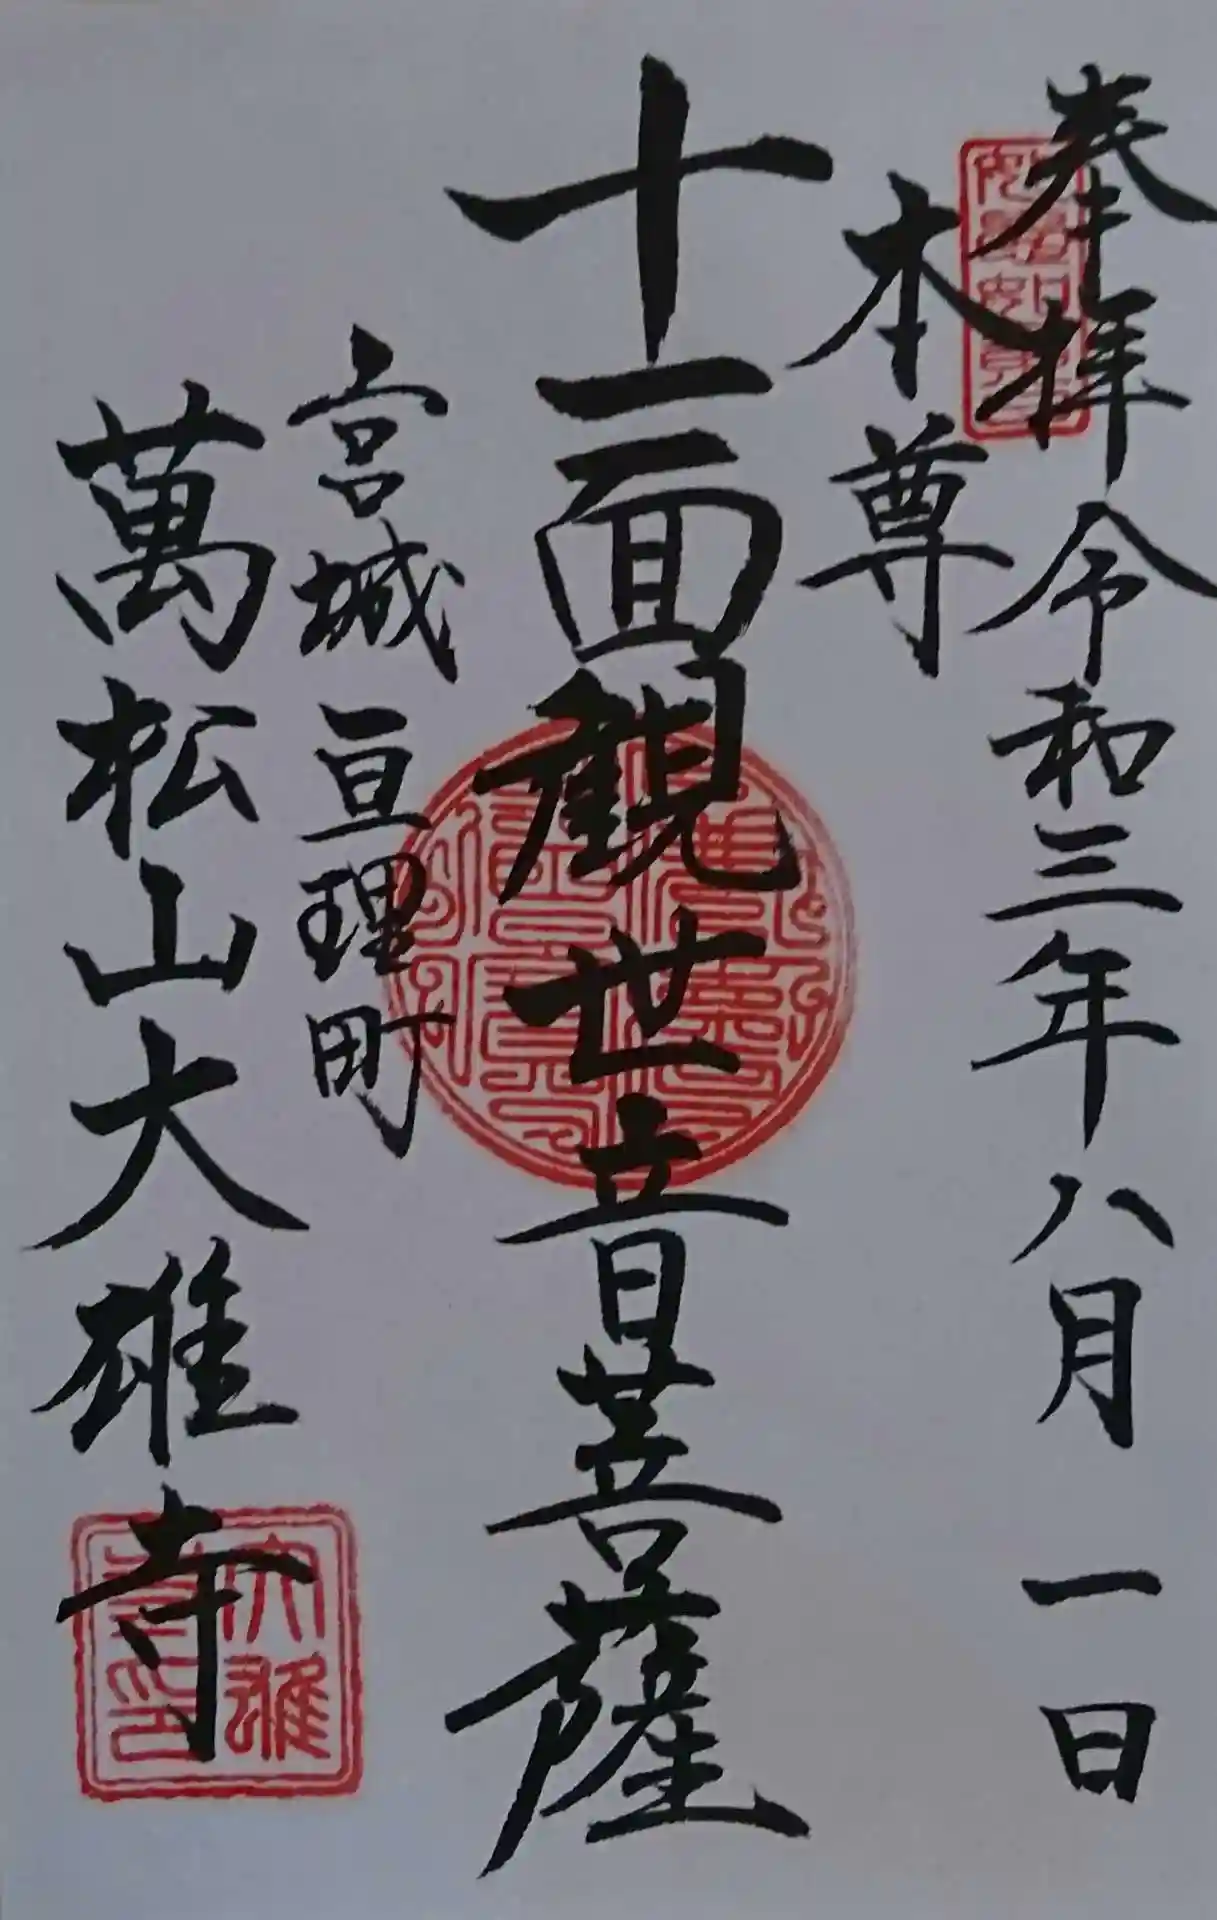 奉拝 令和三年八月一日
本尊
十一面観世音菩薩
宮城 亘理町
萬松山大雄寺